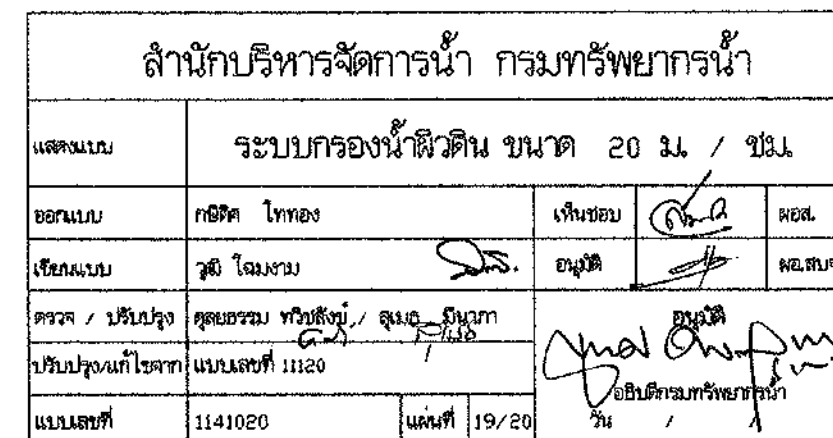 สำนักบริหารจัดการน้ำ กรมทรัพยากรน้ำ
แสดงแบบ ระบบกรองน้ำผิวดิน ขนาด 20 ม. / ชม.
ออกแบบ กษิดิศ โททอง เห็นชอบ ผอส.
เขียนแบบ วุฒิ โฉมงาม อนุมัติ ผอ.สบจ
ตรวจ / ปรับปรุง ตุลยธรรม ทวิชสังข์ / สุเมธ มีนาภา อนุมัติ
ปรับปรุง/แก้ไขจาก แบบเลขที่ 11120
อธิบดีกรมทรัพยากรน้ำ
แบบเลขที่ 1141020 แผ่นที่ 19/20 วัน / /